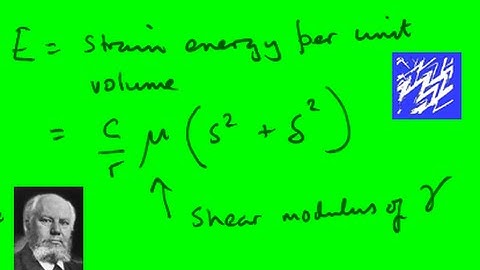 E = strain energy per unit
volume
= c/r μ (s² + δ²)
↑ shear modulus of γ